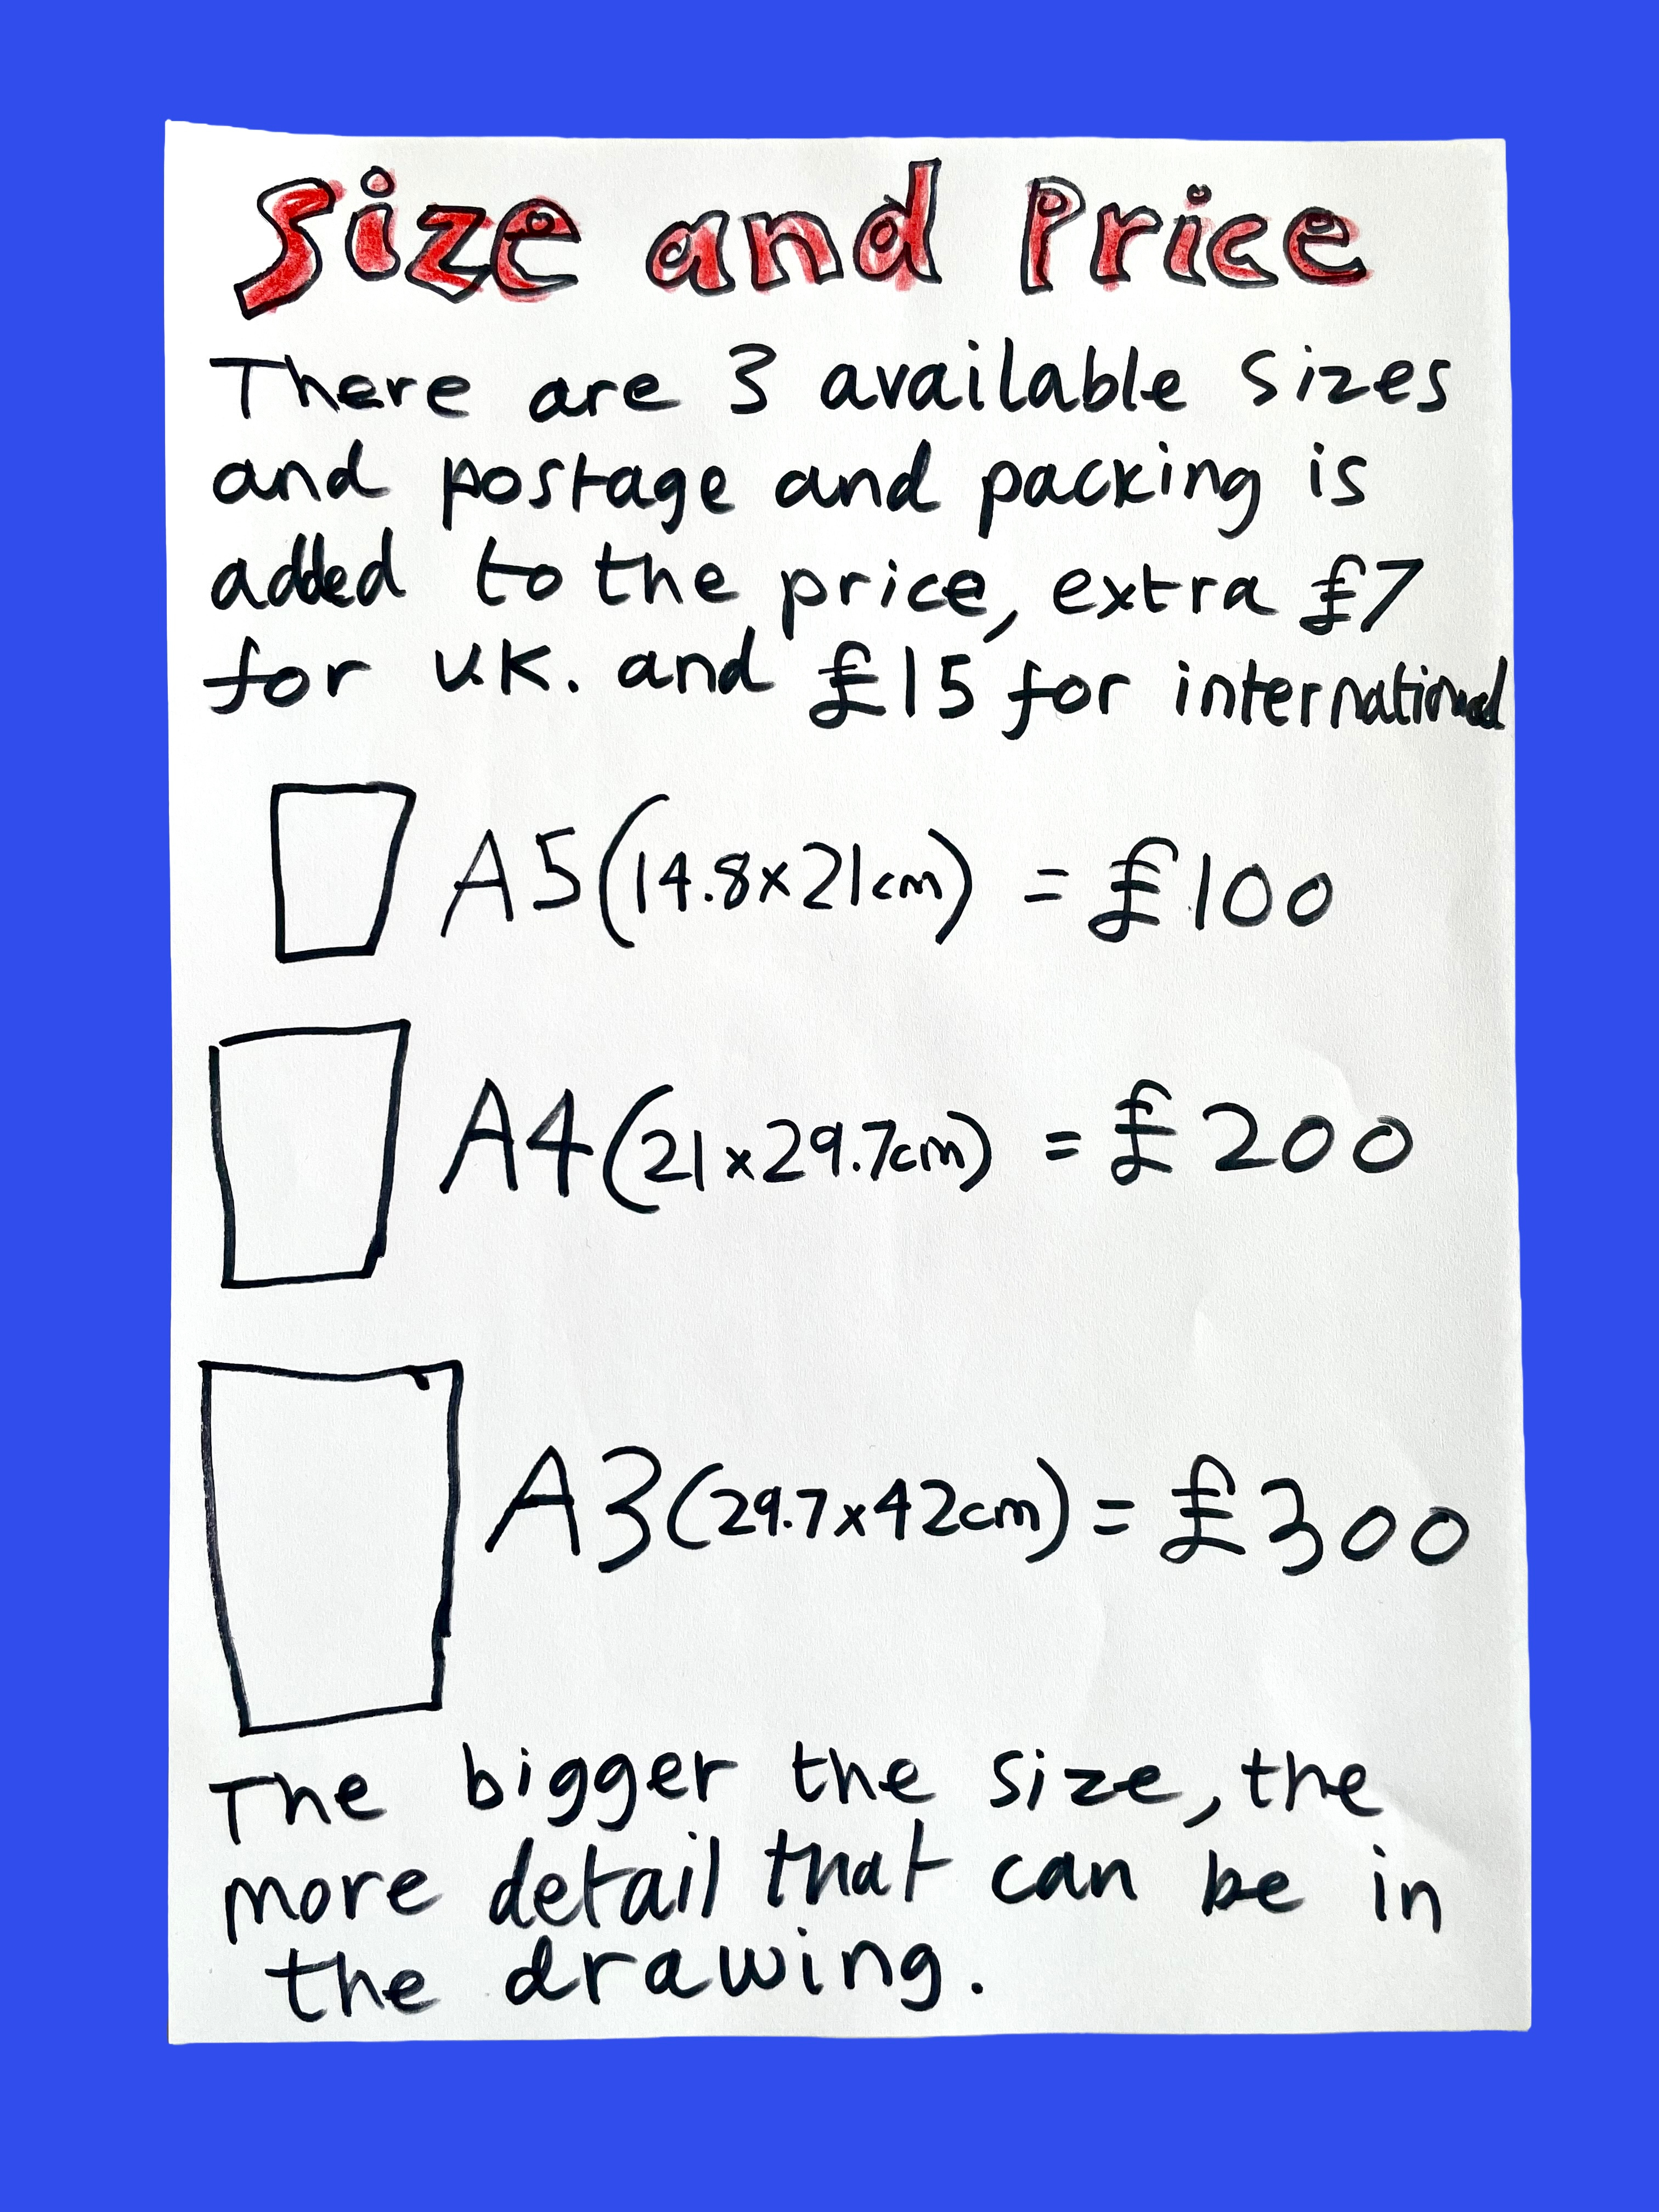 Size and Price
There are 3 available sizes
and postage and packing is
added to the price, extra £7
for U.K. and £15 for international
A5 (14.8x21cm) = £100
A4 (21x29.7cm) = £200
A3 (29.7x42cm) = £300
The bigger the size, the
more detail that can be in
the drawing.